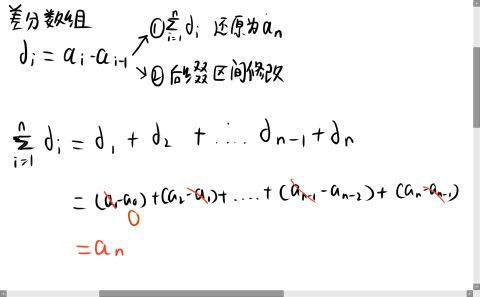 差分数组
dᵢ = aᵢ - aᵢ₋₁
① ∑ᵢ₌₁ⁿ dᵢ 还原为 aₙ
② 后缀区间修改
∑ᵢ₌₁ⁿ dᵢ = d₁ + d₂ + .... dₙ₋₁ + dₙ
= (a₁-a₀) + (a₂-a₁) + .... + (aₙ₋₁-aₙ₋₂) + (aₙ-aₙ₋₁)
0
= aₙ